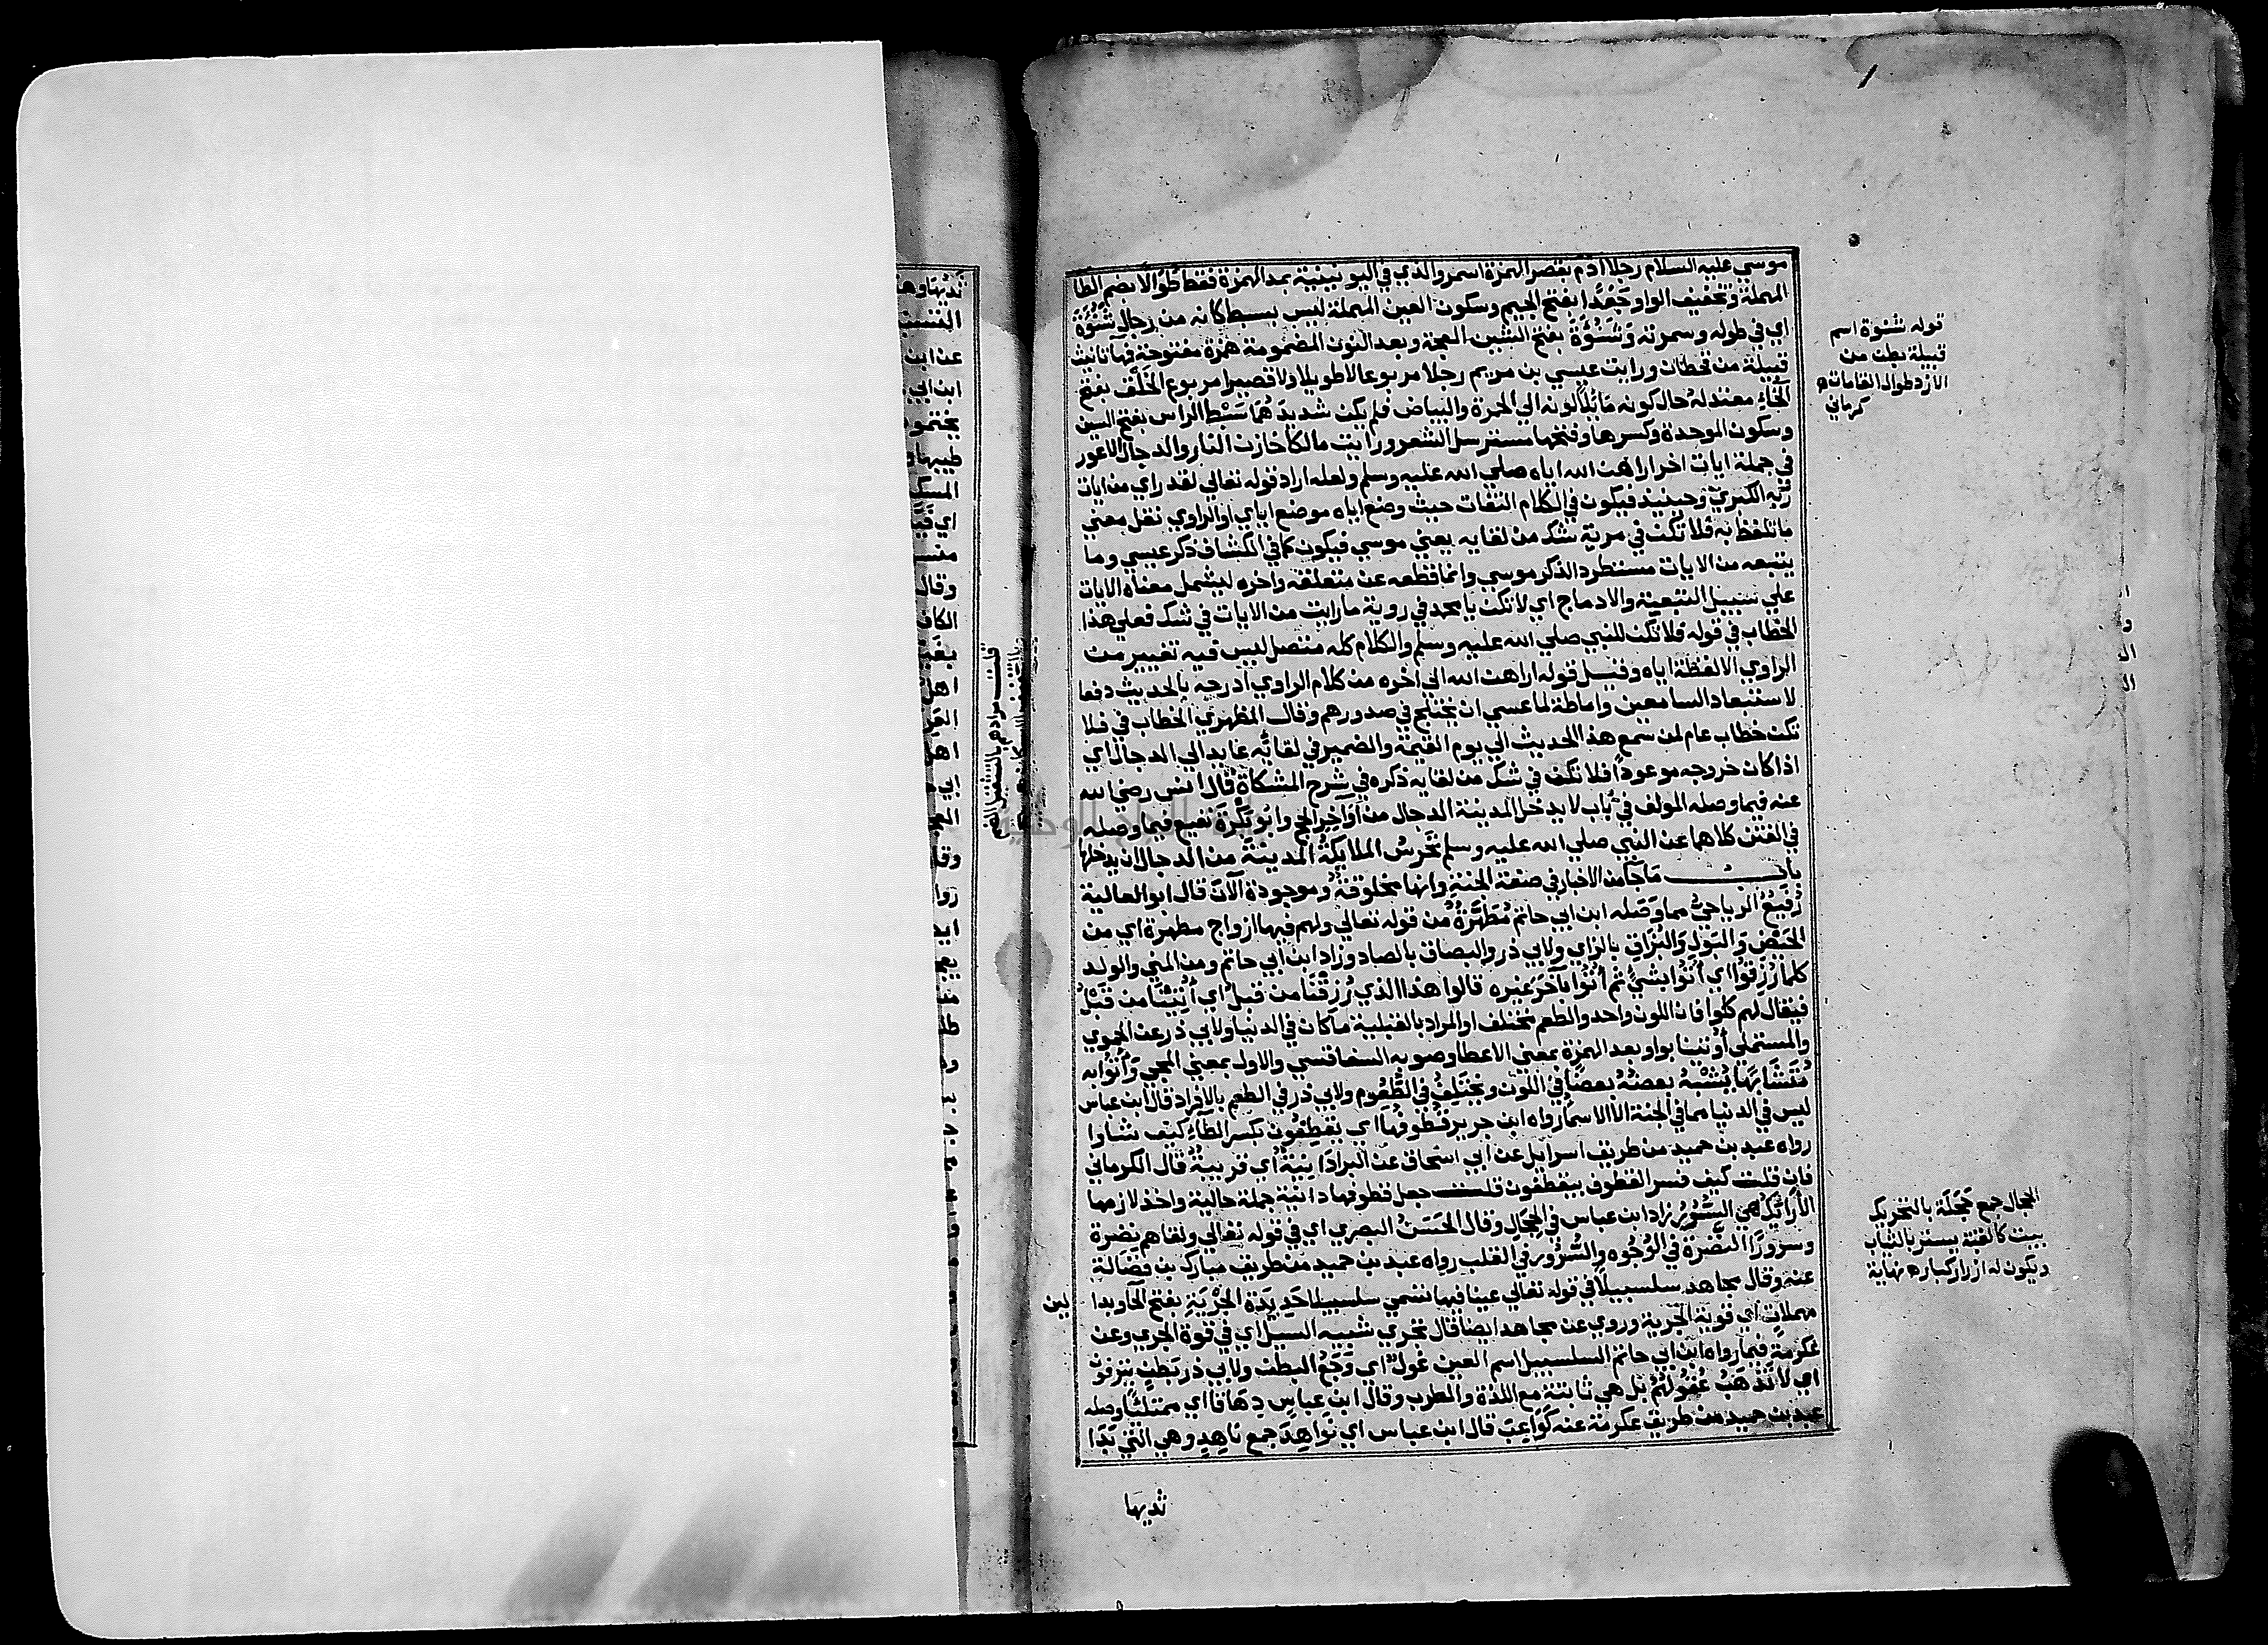 موسي عليه السلام رجلا آدم بقصر الهمزة اسمر والذي في اليونينية بمد الهمزة فقط طوالا بضم الطا
المهملة وتخفيف الواو جعدا بفتح الجيم وسكون العين المهملة ليس بسبط كانه من رجال شنوءة
اي في طوله وسمرته وشنوءة بفتح الشين المعجمة وبعد النون المضمومة همزة مفتوحة فهاء تانيث
قبيلة من قحطان ورايت عيسي بن مريم رجلا مربوعا لا طويلا ولا قصيرا مربوع الخلق بفتح
الخاء معتدله حال كونه مائلا لونه الي الحمرة والبياض فلم يكن شديدهما سبط الراس بفتح السين
وسكون الموحدة وكسرها وفتحها مسترسل الشعر ورايت مالكا خازن النار والدجال الاعور
في جملة ايات اخر اراهن الله اياه صلي الله عليه وسلم ولعله اراد قوله تعالي لقد راي من ايات
ربه الكبري وحينيد فيكون في الكلام التفات حيث وضع اياه موضع اياي او الراوي نقل معني
ما تلفظ به فلا تكن في مرية شك من لقايه يعني موسي فيكون كما في الكشاف ذكر عيسي وما
يتبعه من الايات مستطرد الذكر موسي وانما قطعه عن متعلقه واخره ليشمل معناه الايات
علي سبيل التبعية والادماج اي لا تكن يا محمد في روية ما رايت من الايات في شك فعلي هذا
الخطاب في قوله فلا تكن للنبي صلي الله عليه وسلم والكلام كله متصل ليس فيه تغيير من
الراوي الا لفظة اياه وقيل قوله اراهن الله الي اخره من كلام الراوي ادرجه بالحديث دفعا
لاستبعاد السامعين واماطة لما عسي ان يختلج في صدورهم وقال المظهري الخطاب في فلا
تكن خطاب عام لمن سمع هذا الحديث الي يوم القيمة والضمير في لقائه عايد الي الدجال اي
اذا كان خروجه موعودا فلا تكن في شك من لقايه ذكره في شرح المشكاة قال انس رضي الله
عنه فيما وصله المولف في باب لا يدخل المدينة الدجال من اواخر الحج وابو بكرة نفيع فيما وصله
في الفتن كلاهما عن النبي صلي الله عليه وسلم تحرس الملايكة المدينة من الدجال ان يدخلها
باب ما جا من الاخبار في صفة الجنة وانها مخلوقة وموجودة الان قال ابو العالية
رفيع الرياحي مما وصله ابن ابي حاتم مطهرة من قوله تعالي ولهم فيها ازواج مطهرة اي من
الحيض والبول والبزاق بالزاي ولابي ذر والبصاق بالصاد وزاد ابن ابي حاتم ومن المني والولد
كلما رزقوا اي اتوا بشيء ثم اتوا باخر غيره قالوا هذا الذي رزقنا من قبل اي اتينا من قبل
فيقال لهم كلوا فان اللون واحد والطعم مختلف او المراد بالقبلية ما كان في الدنيا ولابي ذر عن الحموي
والمستملي اوتينا بواو بعد الهمزة بمعني الاعطا وصوبه السفاقسي والاول بمعني المجي واتوا به
متشابها يشبه بعضه بعضا في اللون ويختلف في الطعوم ولابي ذر في الطعم بالافراد قال ابن عباس
ليس في الدنيا مما في الجنة الا الاسما رواه ابن جرير قطوفها اي يقطفون بكسر الطاء كيف شاوا
رواه عبد بن حميد من طريق اسرايل عن ابي اسحاق عن البرا دانية اي قريبة قال الكرماني
فان قلت كيف فسر القطوف بيقطفون قلت جعل قطوفها دانية جملة حالية واخذ لازمها
الارائك هي السرر زاد ابن عباس في الحجال وقال الحسن البصري اي في قوله تعالي ولقاهم نضرة
وسرورا النضرة في الوجوه والسرور في القلب رواه عبد بن حميد من طريق مبارك بن فضالة
عنه وقال مجاهد سلسبيلا في قوله تعالي عينا فيها تسمي سلسبيلا حديدة الجرية بفتح الحا وبدا
مهملات اي قوية الجرية وروي عن مجاهد ايضا قال تجري شبيه السيل اي في قوة الجري وعن
عكرمة فيما رواه ابن ابي حاتم السلسبيل اسم العين غول اي وجع البطن ولابي ذر بطن ينزفون
اي لا تذهب عقولهم بل هي ثابتة مع اللذة والطرب وقال ابن عباس دهاقا اي ممتلئا وصله
عبد بن حميد من طريق عكرمة عنه كواعب قال ابن عباس اي نواهد جمع ناهد وهي التي بدا
ثديها
قوله شنوة اسم
قبيلة بطن من
الازد طوال القامات
كرماني
الحجال جمع حجلة بالتحريك
بيت كالقبة يستر بالثياب
ويكون له ازرار كبار ه نهاية
لين
ثديها وه
عن ابن
ابن ابي
وقال